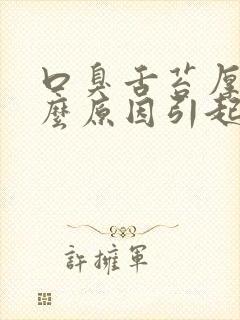 口臭舌苔厚
麼原因引起
許擁軍